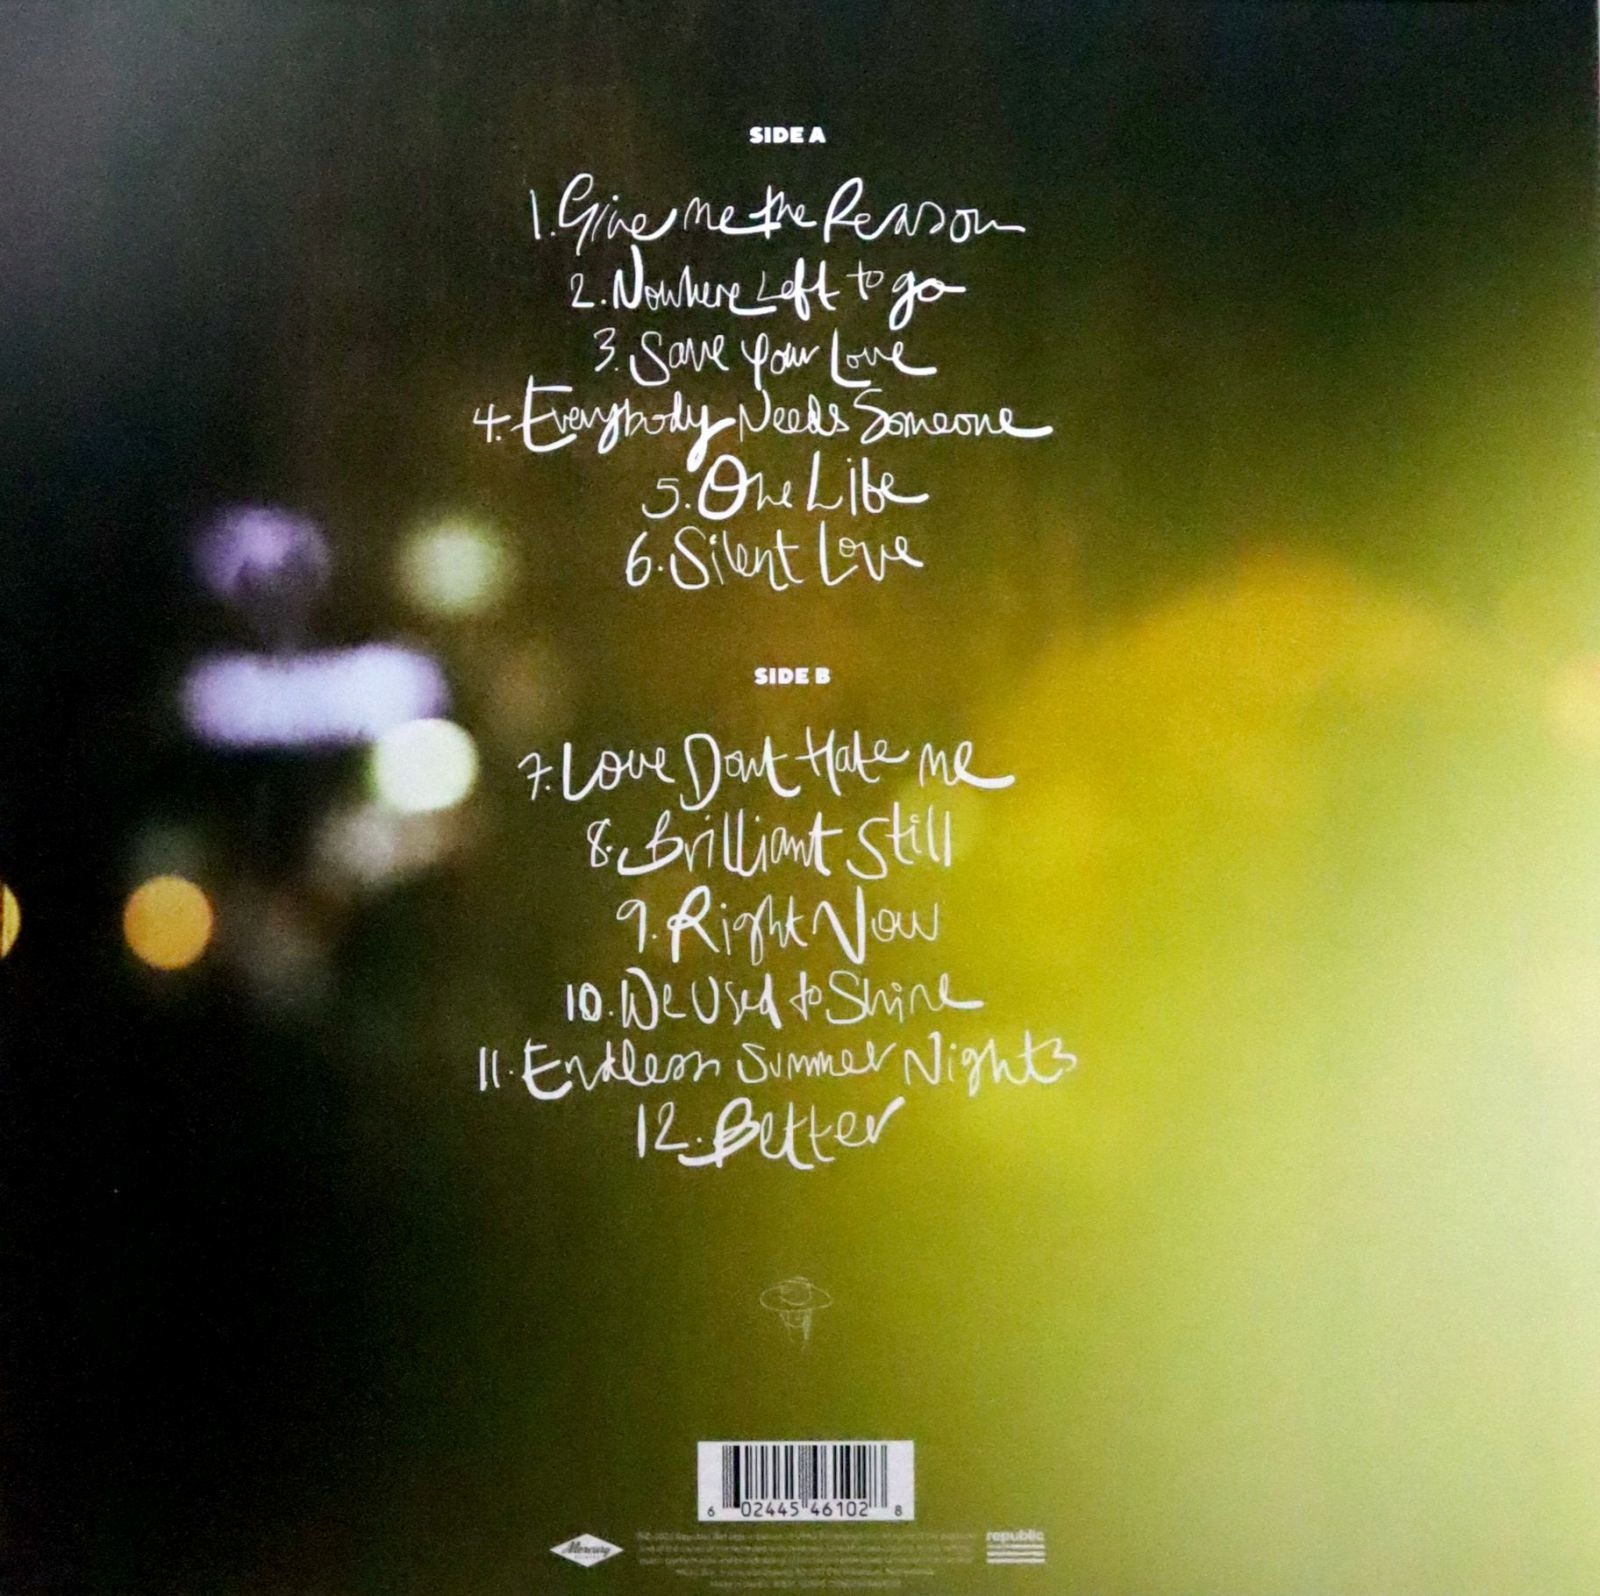 SIDE A
1. Give me the Reason
2. Nowhere Left to go
3. Save Your Love
4. Everybody Needs Someone
5. One Life
6. Silent Love
SIDE B
7. Love Dont Hate me
8. Brilliant Still
9. Right Now
10. We Used to Shine
11. Endless Summer Nights
12. Better
6 02445 46102 8
Mercury
republic